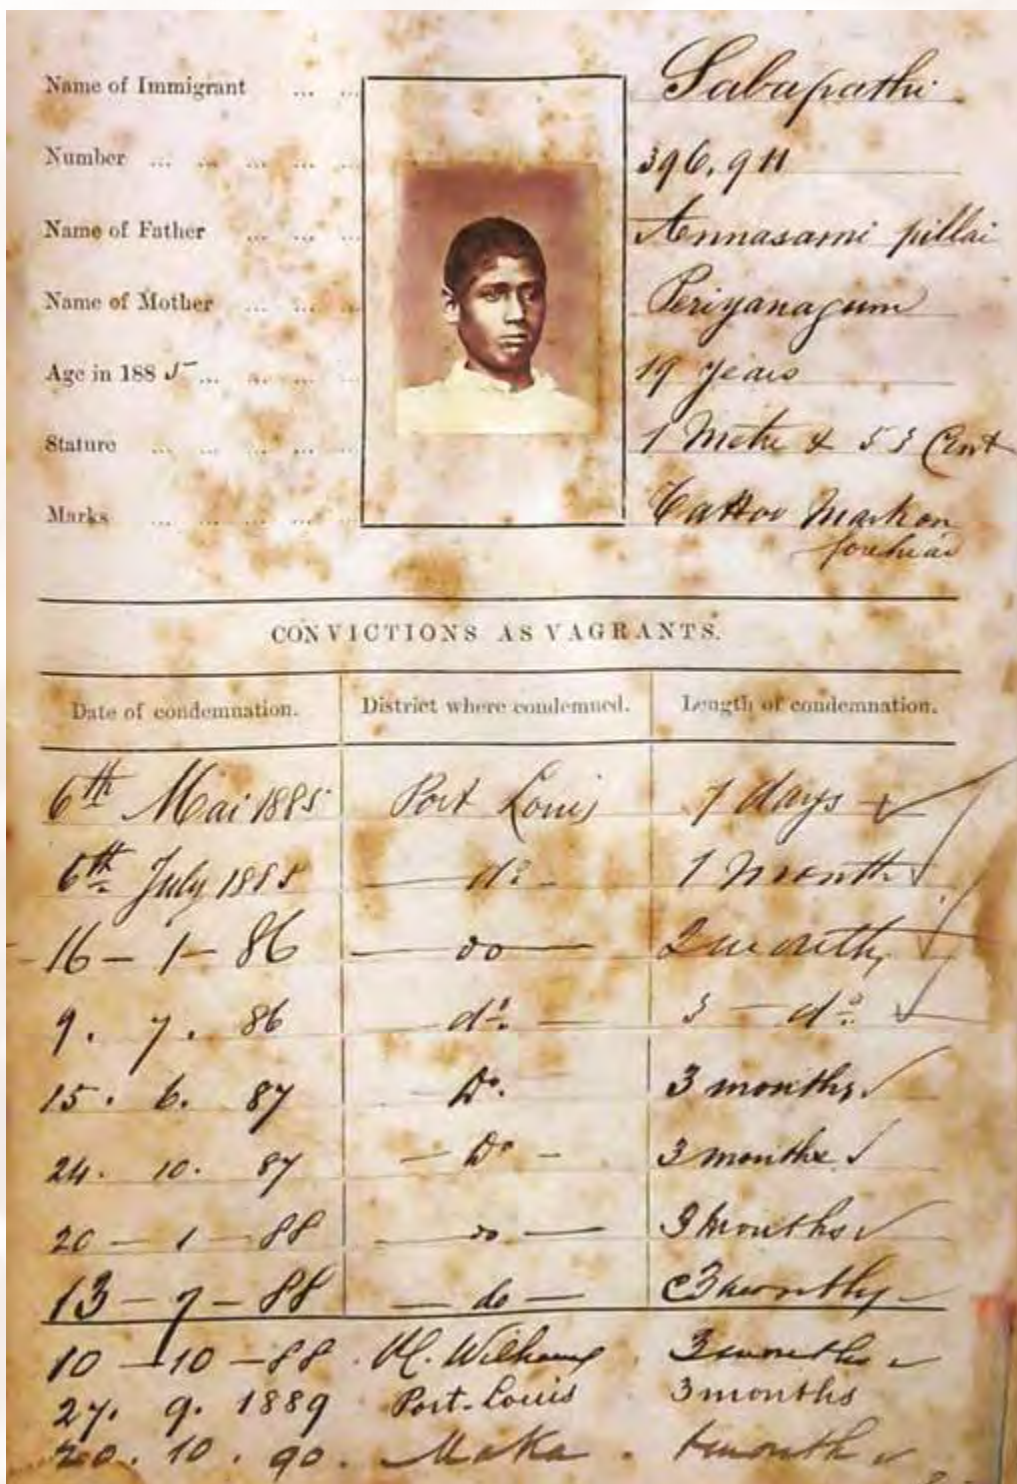 Name of Immigrant ... ... Sabapathi
Number ... ... ... ... ... 396.911
Name of Father ... ... ... Annasami pillai
Name of Mother ... ... ... Periyanagum
Age in 1885 ... ... ... ... 19 Years
Stature ... ... ... ... ... 1 Metre & 53 Cent
Marks ... ... ... ... ... Tattoo Mark on
forehead
CONVICTIONS AS VAGRANTS.
Date of condemnation. District where condemned. Length of condemnation.
6th Mai 1885 Port Louis 7 days
6th July 1885 — do - 1 Month
16 - 1 - 86 — do — 2 months
9. 7. 86 — do. — 3 — do.
15. 6. 87 Do. 3 months
24. 10. 87 — Do - 3 months
20 - 1 - 88 — do — 3 Months
13 - 7 - 88 — do — 3 months
10 - 10 - 88 3 months
27. 9. 1889 Port-Louis 3 months
20. 10. 90. Moka. month